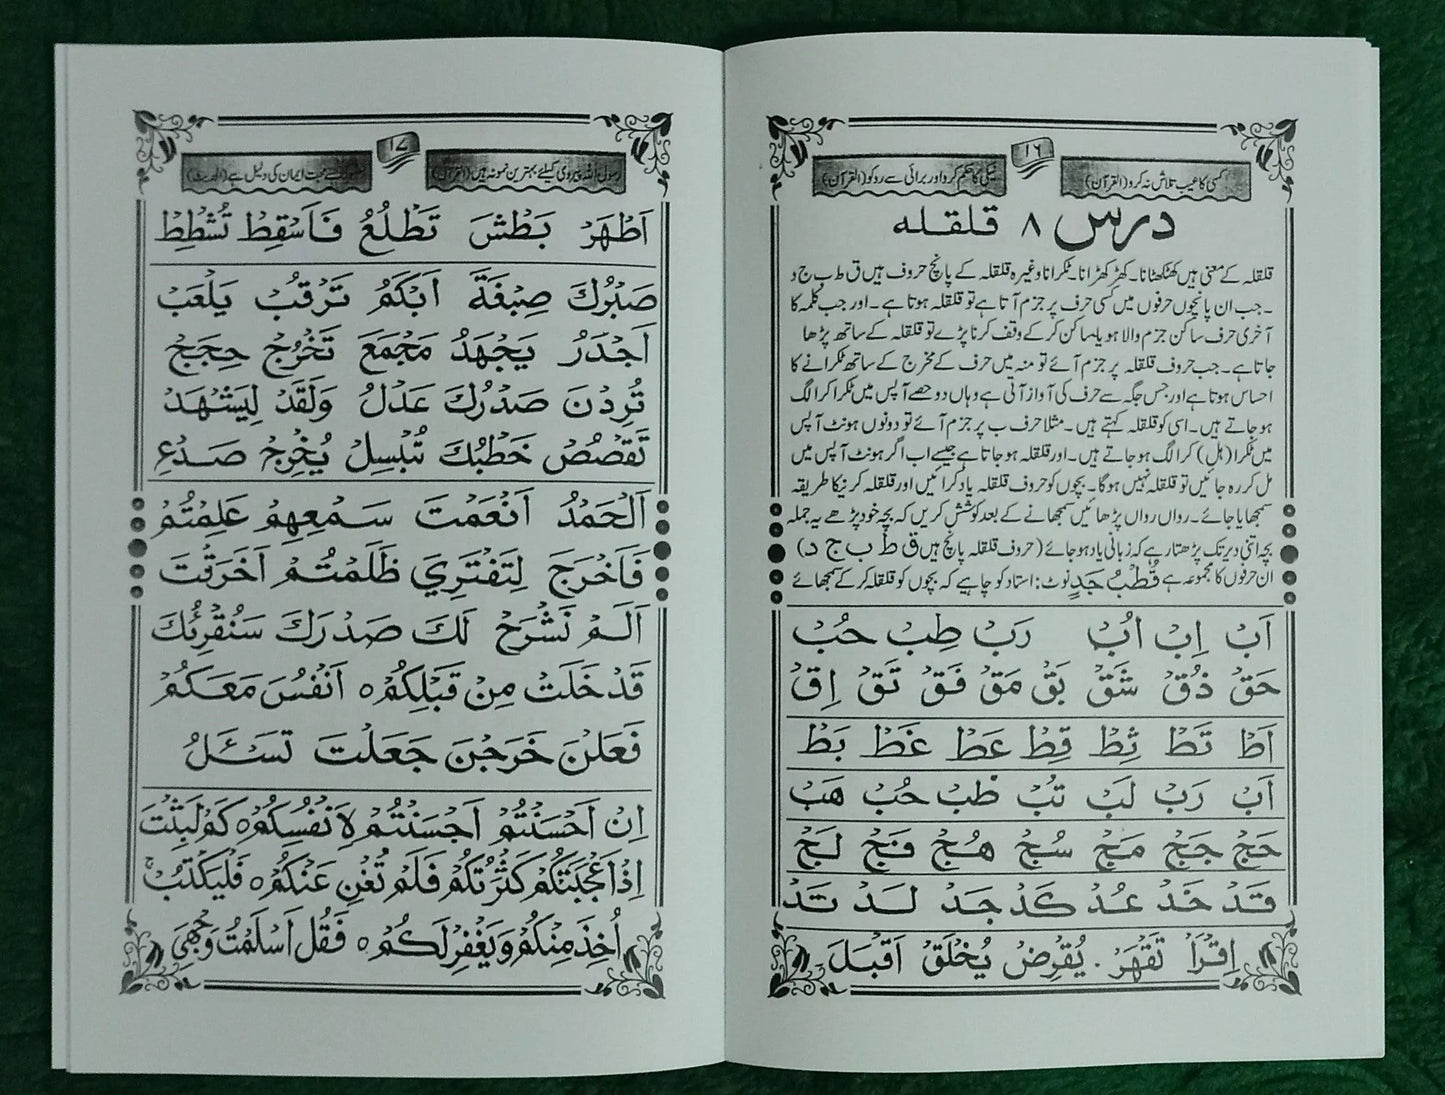 ۱۶
کسی کا عیب تلاش نہ کرو (القرآن)
نیکی کا حکم کرو اور برائی سے روکو (القرآن)
درس ۸ قلقلہ
قلقلہ کے معنی ہیں کھٹکھٹانا۔ کھڑکھڑانا۔ ٹکرانا وغیرہ قلقلہ کے پانچ حروف ہیں ق ط ب ج د
۔ جب ان پانچوں حرفوں میں کسی حرف پر جزم آتا ہے تو قلقلہ ہوتا ہے۔ اور جب کلمہ کا
آخری حرف ساکن جزم والا ہو یا ساکن کر کے وقف کرنا پڑے تو قلقلہ کے ساتھ پڑھا
جاتا ہے۔ جب حروف قلقلہ پر جزم آئے تو منہ میں حرف کے مخرج کے ساتھ ٹکرانے کا
احساس ہوتا ہے اور جس جگہ سے حرف کی آواز آتی ہے وہاں دو حصے آپس میں ٹکرا کر الگ
ہو جاتے ہیں۔ اسی کو قلقلہ کہتے ہیں۔ مثلا حرف ب پر جزم آئے تو دونوں ہونٹ آپس
میں ٹکرا (ہل) کر الگ ہو جاتے ہیں۔ اور قلقلہ ہو جاتا ہے جیسے اب اگر ہونٹ آپس میں
مل کر رہ جائیں تو قلقلہ نہیں ہوگا۔ بچوں کو حروف قلقلہ یاد کرائیں اور قلقلہ کرنیکا طریقہ
سمجھایا جائے۔ رواں رواں پڑھائیں سمجھانے کے بعد کوشش کریں کہ بچہ خود پڑھے یہ جملہ
بچہ اتنی دیر تک پڑھتا رہے کہ زبانی یاد ہو جائے (حروف قلقلہ پانچ ہیں ق ط ب ج د)
ان حرفوں کا مجموعہ ہے قُطْبُ جَدٍ نوٹ: استاد کو چاہیے کہ بچوں کو قلقلہ کر کے سمجھائے
اَبْ اِبْ اُبْ رَبْ طِبْ حُبْ
حَقْ ذُقْ شَقْ بَقْ مَقْ فَقْ تَقْ اِقْ
اَطْ تَطْ ثِطْ قِطْ عَطْ غَطْ بَطْ
اَبْ رَبْ لَبْ تُبْ طَبْ حُبْ هَبْ
حَجْ جَجْ مَجْ سُجْ هُجْ فَجْ لَجْ
قَدْ خَدْ عُدْ كَدْ جَدْ لَدْ تَدْ
اِقْرَأْ تَقْهَرْ . يُقْرِضُ يُخْلَقْ اَقْبَلَ
۱۷
رسول اللہ پیروی کیلئے بہترین نمونہ ہیں (القرآن)
محبت ایمان کی دلیل ہے (الحدیث)
اَظْهَرْ بَطْشَ تَطْلُعُ فَاَسْقِطْ تُشْطِطْ
صَبْرُكَ صِبْغَةً اَبْكَمُ تَرْقُبْ يَلْعَبْ
اَجْدَرُ يَجْهَدُ مَجْمَعَ تَخْرُجْ حِجَجْ
تُرِدْنَ صَدْرُكَ عَدْلُ وَلَقَدْ لِيَشْهَدْ
تَقْصُصْ خَطْبُكَ تُبْسِلْ يُخْرِجْ صَدْعِ
اَلْحَمْدُ اَنْعَمْتَ سَمْعِهِمْ عَلِمْتُمْ
فَاَخْرَجَ لِتَفْتَرِيَ ظَلَمْتُمْ اَخَرَقْتَ
اَلَمْ نَشْرَحْ لَكَ صَدْرَكَ سَنُقْرِئُكَ
قَدْ خَلَتْ مِنْ قَبْلِكُمْ ٥ اَنْفُسَ مَعَكُمْ
فَعَلْنَ خَرَجْنَ جَعَلْتَ تَسْـَٔلُ
اِنْ اَحْسَنْتُمْ اَحْسَنْتُمْ لِاَنْفُسِكُمْ ٥ كَمْ لَبِثْتَ
اِذْ اَعْجَبَتْكُمْ كَثْرَتُكُمْ فَلَمْ تُغْنِ عَنْكُمْ ٥ فَلْيَكْتُبْ
اُخِذَ مِنْكُمْ وَيَغْفِرْ لَكُمْ ٥ فَقُلْ اَسْلَمْتُ وَجْهِيَ